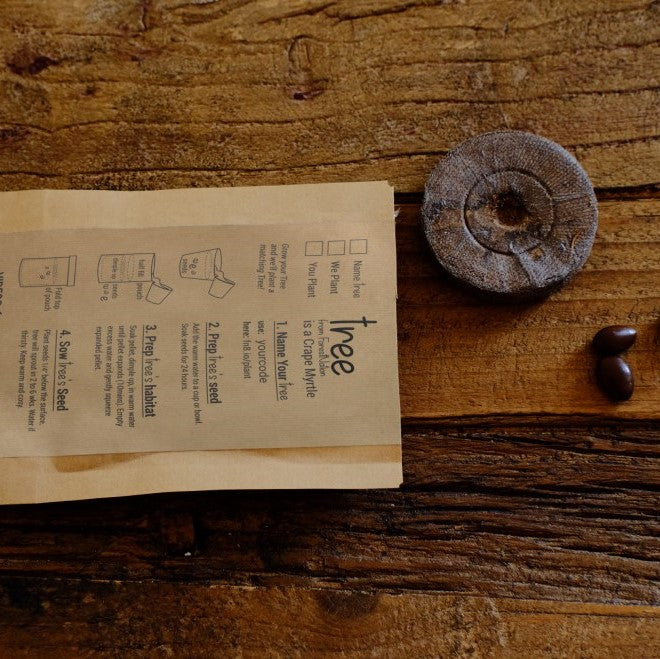 Name Tree
We Plant
You Plant
tree
from ForestNation
is a Crape Myrtle
Grow your Tree
and we'll plant a
matching Tree!
1. Name Your tree
use: yourcode
here: fn8.io/plant
seeds
2. Prep tree's seed
Add the warm water to a cup or bowl.
Soak seeds for 24 hours.
half fill pouch
dimple up seeds
3. Prep tree's habitat
Soak pellet, dimple up, in warm water
until pellet expands (10mins). Empty
excess water and gently squeeze
expanded pellet.
Fold top
of pouch
4. Sow tree's Seed
Plant seeds 1/4" below the surface.
tree will sprout in 2 to 6 wks. Water if
thirsty. Keep warm and cosy.